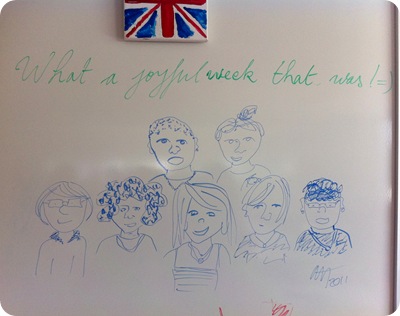 What a joyful week that was! =)
2011